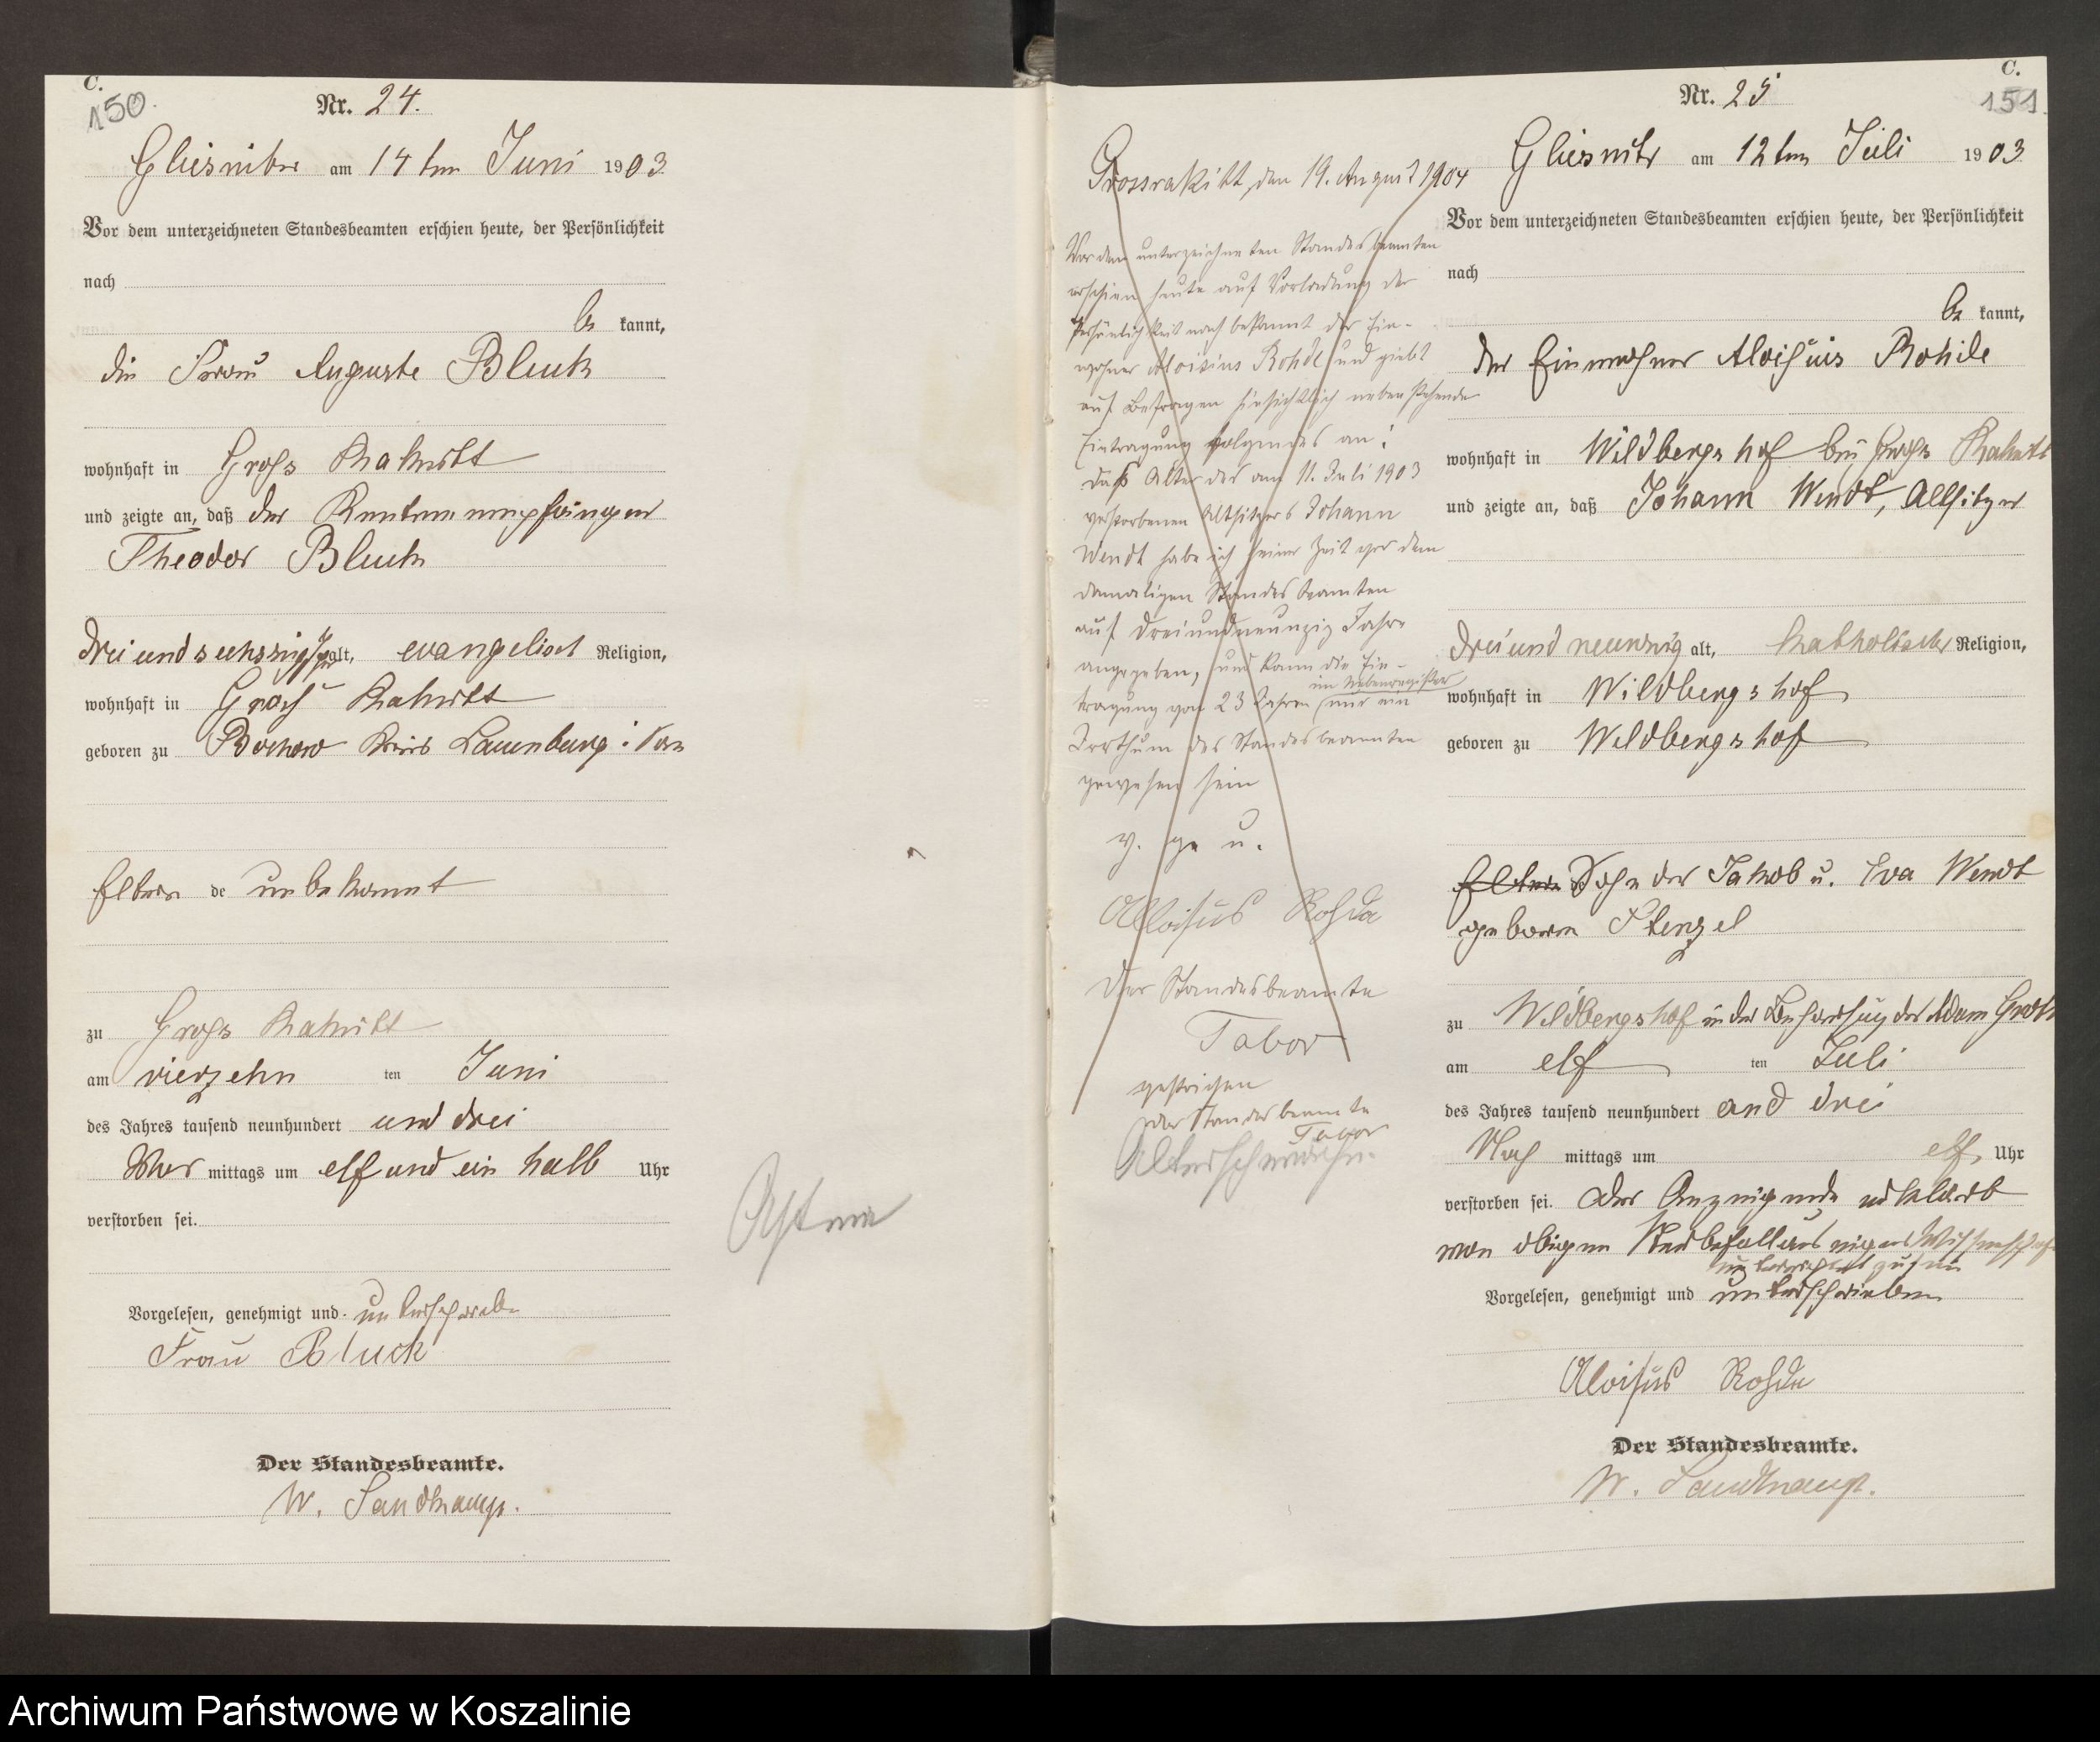 C.
150.
Nr. 24.
Gliesnitz am 14ten Juni 1903
Vor dem unterzeichneten Standesbeamten erschien heute, der Persönlichkeit
nach
be kannt,
die Frau Auguste Bluck
wohnhaft in Gross Rakitt
und zeigte an, daß der Rentenempfänger
Theodor Bluck
drei und sechszig Jahre alt, evangelisch Religion,
wohnhaft in Gross Rakitt
geboren zu Bochow Kreis Lauenburg i/Pom
Eltern de unbekannt
zu Gross Rakitt
am vierzehn ten Juni
des Jahres tausend neunhundert und drei
Vor mittags um elf und ein halb Uhr
verstorben sei.
Vorgelesen, genehmigt und unterschrieben
Frau Bluck
Der Standesbeamte.
W. Sandkamp.
Astma
Grossrakitt, den 19. August 1904
Vor dem unterzeichneten Standesbeamten
erschien heute auf Vorladung der
Persönlichkeit nach bekannt der Ein-
wohner Aloisius Rohde und giebt
auf Befragen hinsichtlich nebenstehende
Eintragung folgendes an:
Daß Alter des am 11. Juli 1903
verstorbenen Altsitzers Johann
Wendt habe ich seiner Zeit vor dem
damaligen Standesbeamten
auf dreiundneunzig Jahre
angegeben, und kann die Ein-
im Nebenregister
tragung von 23 Jahren nur ein
Irrthum des Standesbeamten
gewesen sein
v. g. u.
Aloisius Rohde
Der Standesbeamte
Tabor
gestrichen
der Standesbeamte
Tabor
Altersschwäche.
C.
151
Nr. 25
Gliesnitz am 12ten Juli 1903
Vor dem unterzeichneten Standesbeamten erschien heute, der Persönlichkeit
nach
be kannt,
der Einwohner Aloisius Rohde
wohnhaft in Wildbergshof bei Gross Rakitt
und zeigte an, daß Johann Wendt, Altsitzer
drei und neunzig alt, katholischer Religion,
wohnhaft in Wildbergshof
geboren zu Wildbergshof
Eltern Sohn der Jakob u. Eva Wendt
geborne Stenzel
zu Wildbergshof in der Behausung des Adam
am elf ten Juli
des Jahres tausend neunhundert und drei
Nach mittags um elf Uhr
verstorben sei. Der Anzeigende erklärt
von obigen Sterbefall aus eigner Wissenschaft
unterrichtet zu sein
Vorgelesen, genehmigt und unterschrieben
Aloisius Rohde
Der Standesbeamte.
W. Sandkamp.
Archiwum Państwowe w Koszalinie